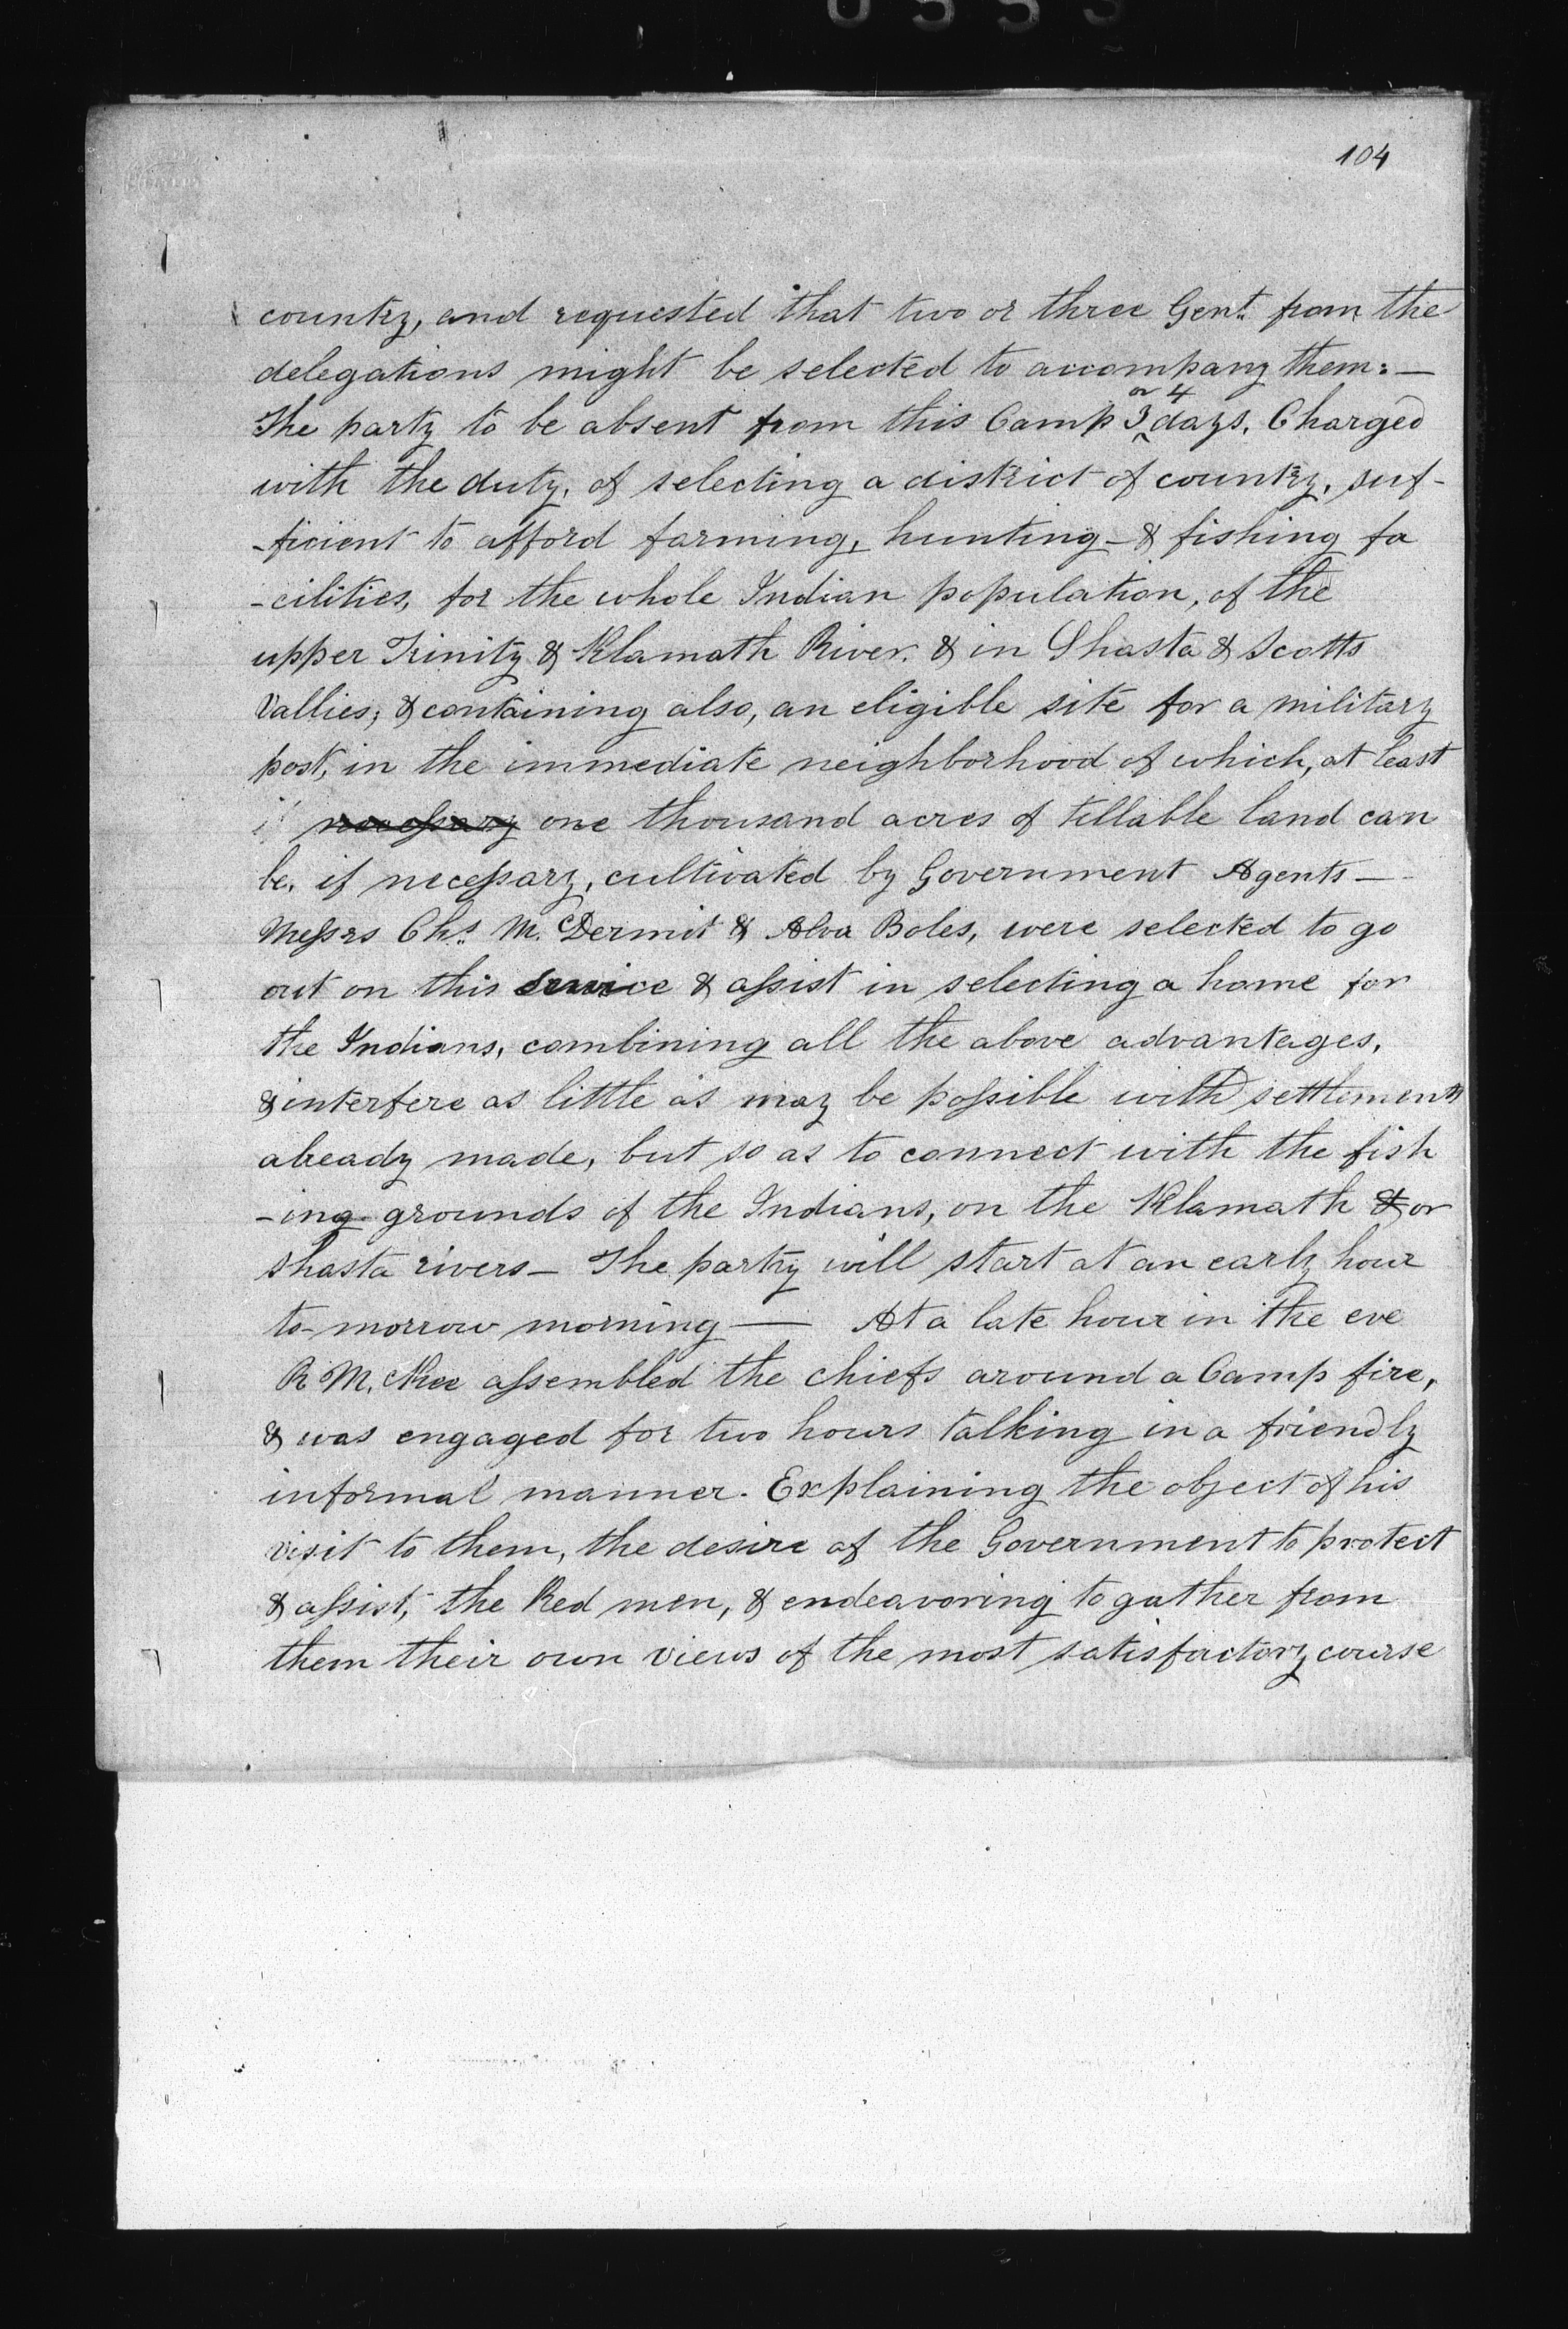 104
country, and requested that two or three Gent. from the
delegations might be selected to accompany them:—
or 4
The party to be absent from this Camp 3 ‸ days. Charged
with the duty, of selecting a district of country, suf-
-ficient to afford farming, hunting- & fishing fa
-cilities, for the whole Indian population, of the
upper Trinity & Klamath River. & in Shasta & Scotts
Vallies; & containing also, an eligible site for a military
post, in the immediate neighborhood of which, at least
if necessary one thousand acres of tillable land can
be, if necessary, cultivated by Government Agents—
Messrs Chs. McDermit & Alva Boles, were selected to go
out on this service & assist in selecting a home for
the Indians, combining all the above advantages,
& interfere as little as may be possible with settlements
already made, but so as to connect with the fish
-ing grounds of the Indians, on the Klamath & or
Shasta rivers— The party will start at an early hour
to-morrow morning — At a late hour in the eve
R McKee assembled the chiefs around a Camp fire,
& was engaged for two hours talking in a friendly
informal manner. Explaining the object of his
visit to them, the desire of the Government to protect
& assist, the Red men, & endeavoring to gather from
them their own views of the most satisfactory course